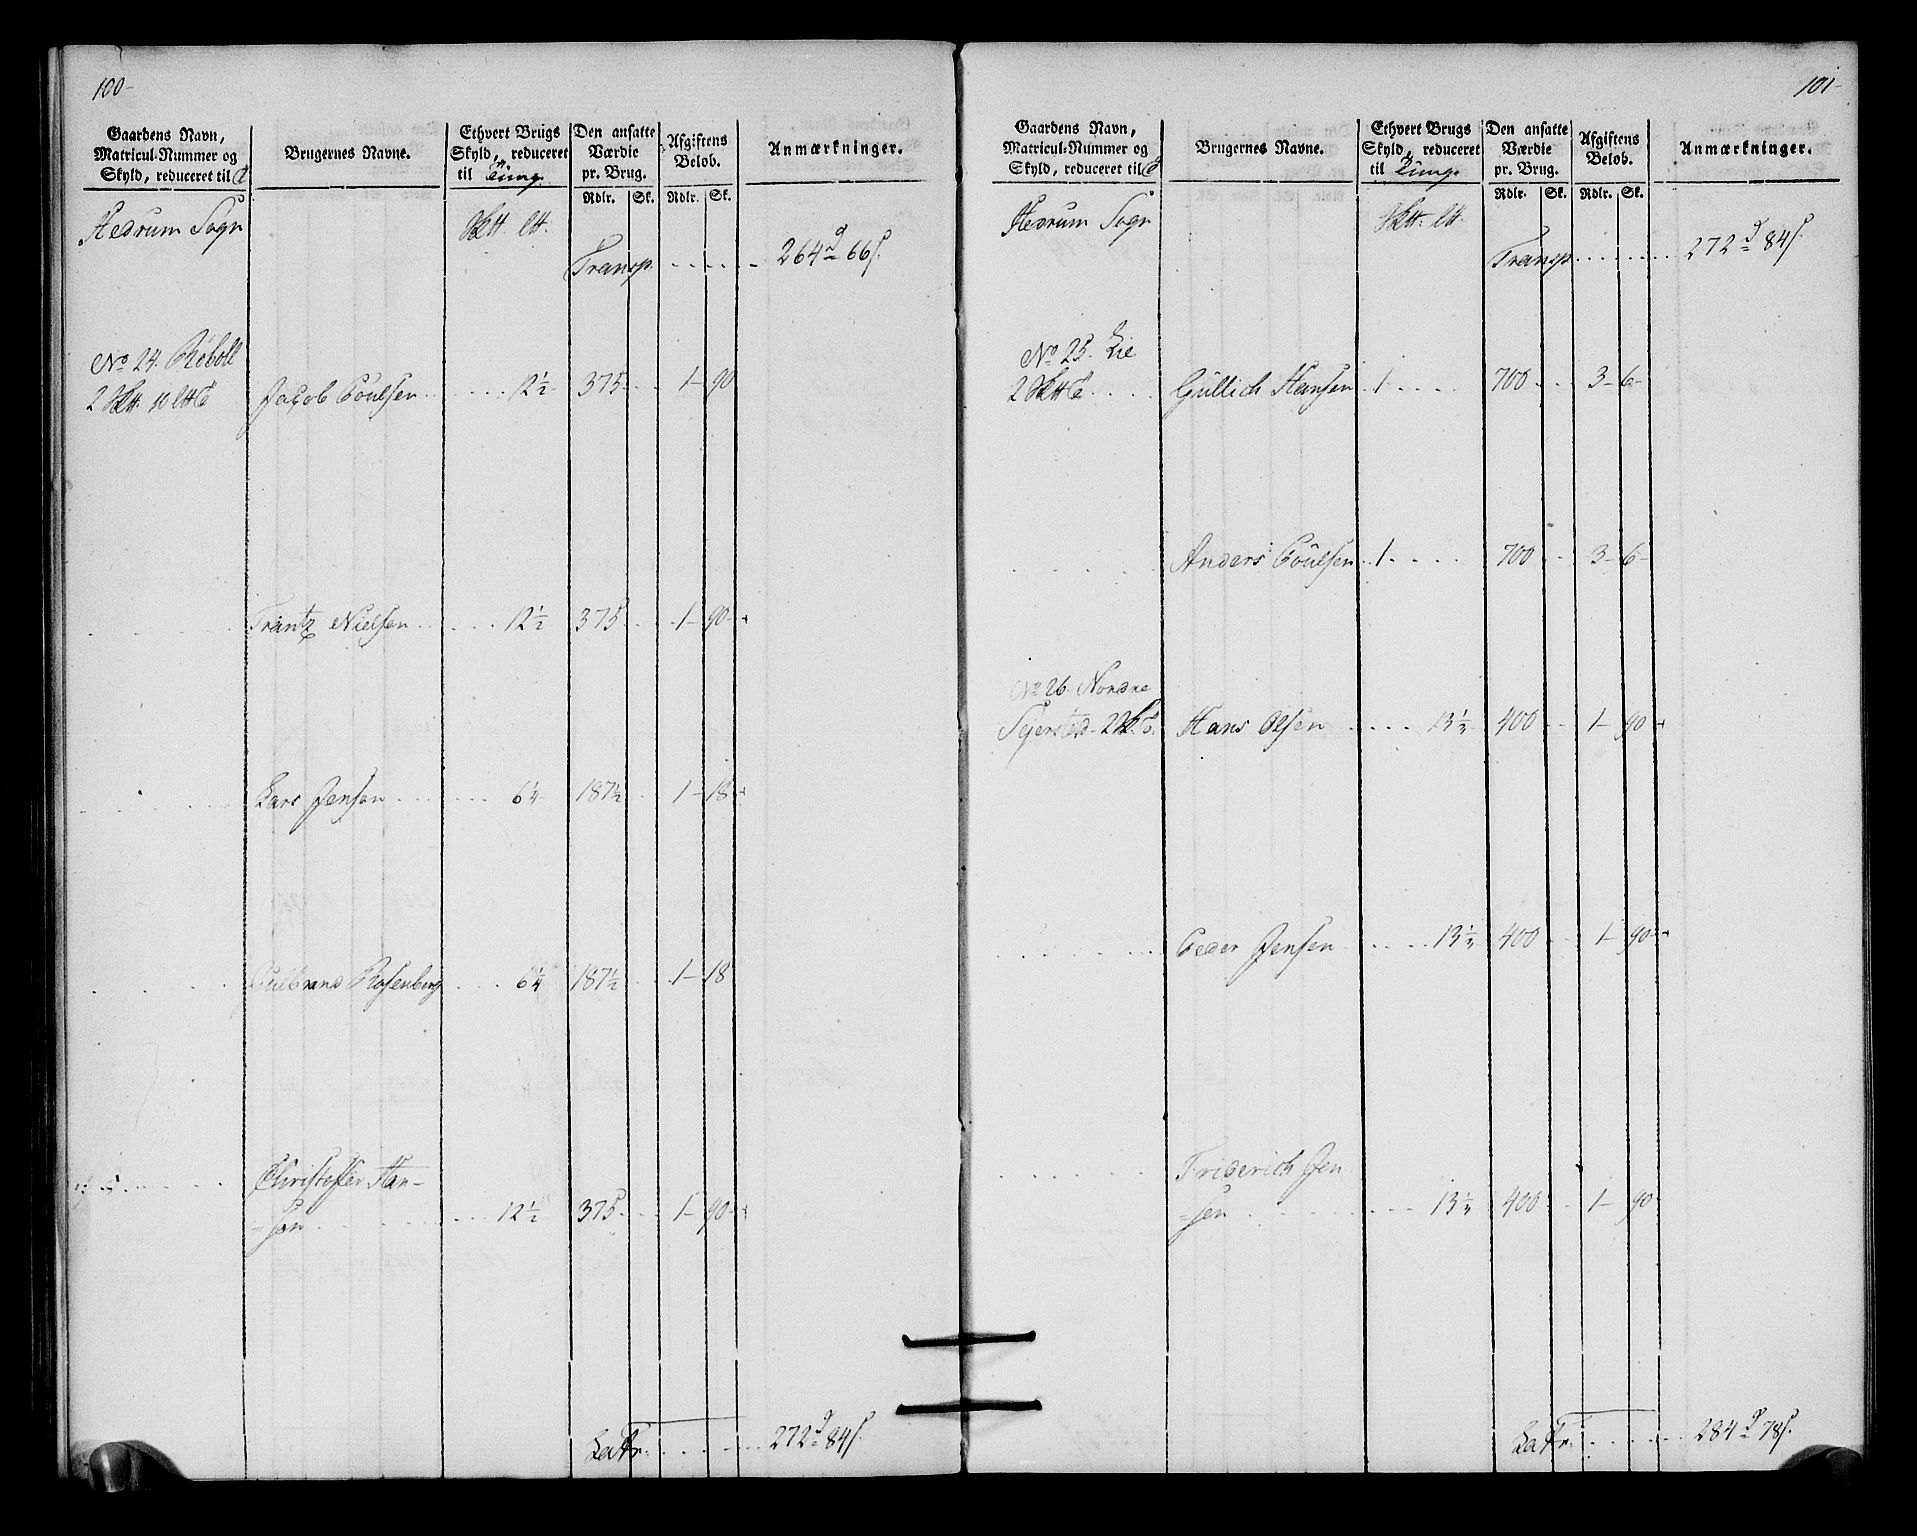 100-
Gaardens Navn,
Matricul-Nummer og
Skyld, reduceret til
Brugernes Navne.
Ethvert Brugs
Skyld, reduceret
til Tunge
Den ansatte
Værdie
pr. Brug.
Afgiftens
Beløb.
Anmærkninger.
Rdlr. Sk. Rdlr. Sk.
Hedrum Sogn
Transp. 264 66
No 24. Röboll
2 10 Jacob Poulsen 12½ 375 1 - 90
Frantz Nielsen 12½ 375 1 - 90
Lars Jensen 6¼ 187½ 1 - 18
Gulbrand Rosenberg 6¼ 187½ 1 - 18
Christoffer Han-
-sen 12½ 375 1 - 90
LaTr. 272 84
101-
Gaardens Navn,
Matricul-Nummer og
Skyld, reduceret til
Brugernes Navne.
Ethvert Brugs
Skyld, reduceret
til Tunge
Den ansatte
Værdie
pr. Brug.
Afgiftens
Beløb.
Anmærkninger.
Rdlr. Sk. Rdlr. Sk.
Hedrum Sogn
Transp. 272 84
No 25. Lie
2 Gullich Hansen 1 700 3 - 6
Anders Poulsen 1 700 3 - 6
No 26 Nordre
Sejersted Hans Olsen 13⅓ 400 1 - 90
Peder Jensen 13⅓ 400 1 - 90
Friderich Jen
=sen 13⅓ 400 1 - 90
LaTr. 284 78